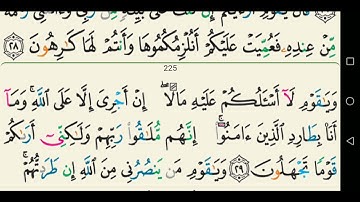 مِّنْ عِندِهِۦ فَعُمِّيَتْ عَلَيْكُمْ أَنُلْزِمُكُمُوهَا وَأَنتُمْ لَهَا كَٰرِهُونَ ٢٨
225
وَيَٰقَوْمِ لَآ أَسْـَٔلُكُمْ عَلَيْهِ مَالًا ۖ إِنْ أَجْرِىَ إِلَّا عَلَى ٱللَّهِ ۚ وَمَآ
أَنَا۠ بِطَارِدِ ٱلَّذِينَ ءَامَنُوٓا۟ ۚ إِنَّهُم مُّلَٰقُوا۟ رَبِّهِمْ وَلَٰكِنِّىٓ أَرَىٰكُمْ
قَوْمًا تَجْهَلُونَ ٢٩ وَيَٰقَوْمِ مَن يَنصُرُنِى مِنَ ٱللَّهِ إِن طَرَدتُّهُمْ ۚ